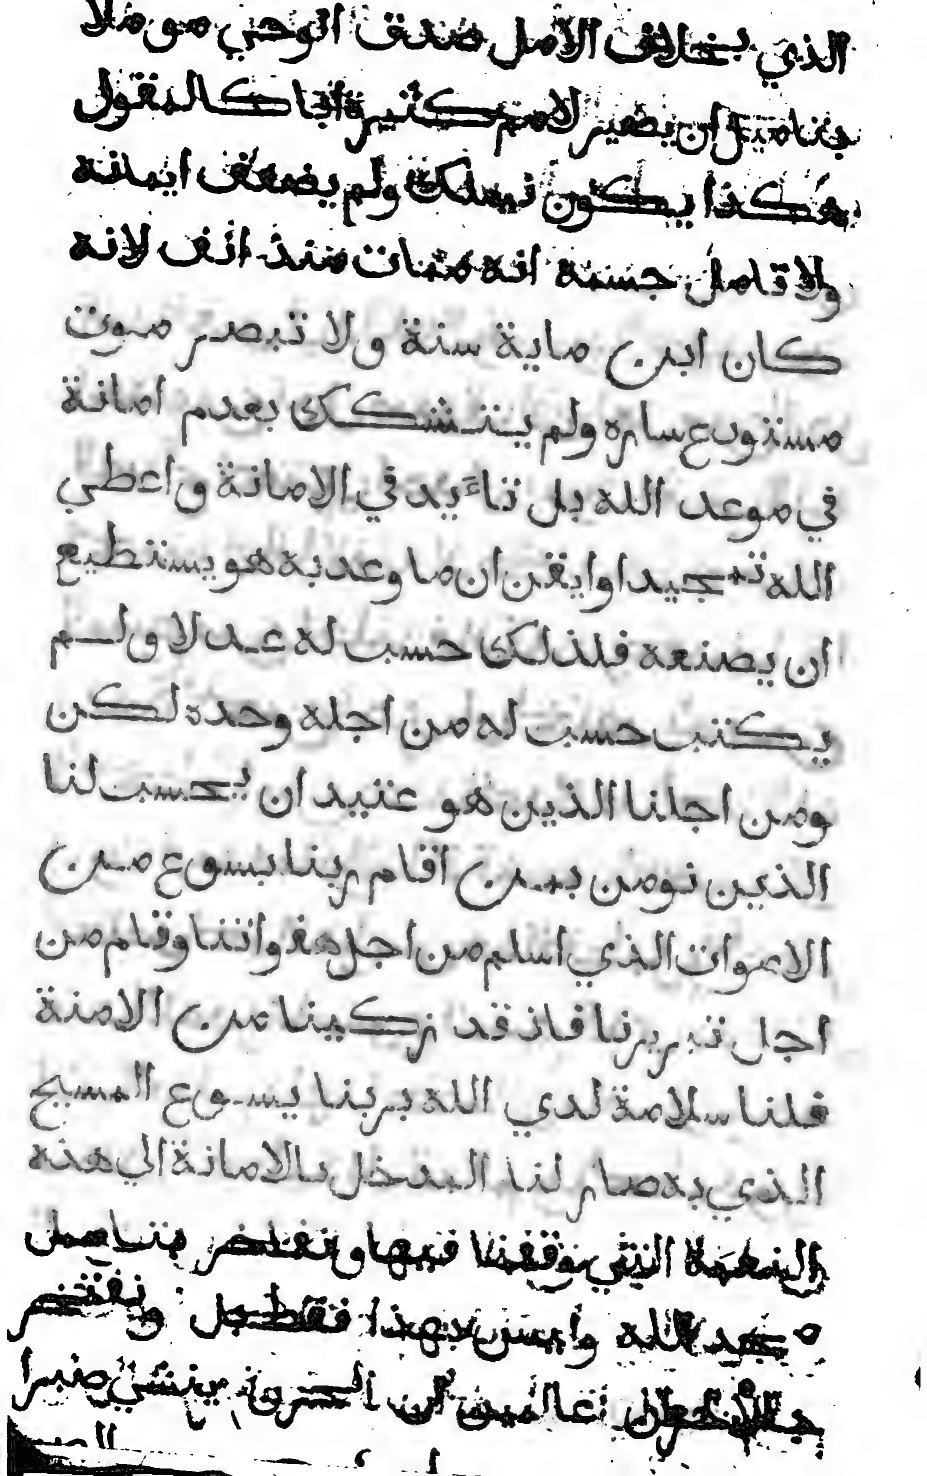 الذي بخلاف الامل صدق الوحي مومنلا
بتاميل ان يصير لامم كثيرة ابا كالمقول
هكذا يكون نسلك ولم يضعف ايمانه
ولا تامل جسمه انه ممات منذ انف لانه
كان ابن ماية سنة ولا تبصر موت
مستودع ساره ولم يتشكك بعدم امانة
في موعد الله بل تاءيد في الامانة واعطي
الله تمجيدا وايقن ان ما وعد به هو يستطيع
ان يصنعه فلذلك حسب له عدلا ولم
يكتب حسب له من اجله وحده لكن
ومن اجلنا الذين هو عتيد ان يحسب لنا
الذين نومن بمن اقام ربنا يسوع من
الاموات الذي اسلم من اجل هفواتنا وقام من
اجل تبريرنا فاذ قد زكينا من الامنة
فلنا سلامة لدي الله بربنا يسوع المسيح
الذي به صار لنا المدخل بالامانة الي هذه
النعمة التي وقفنا فيها ونفتخر بتاميل
مجد الله وليس بهذا فقط بل ونفتخر
عالمين ان الحزن ينشي صبرا